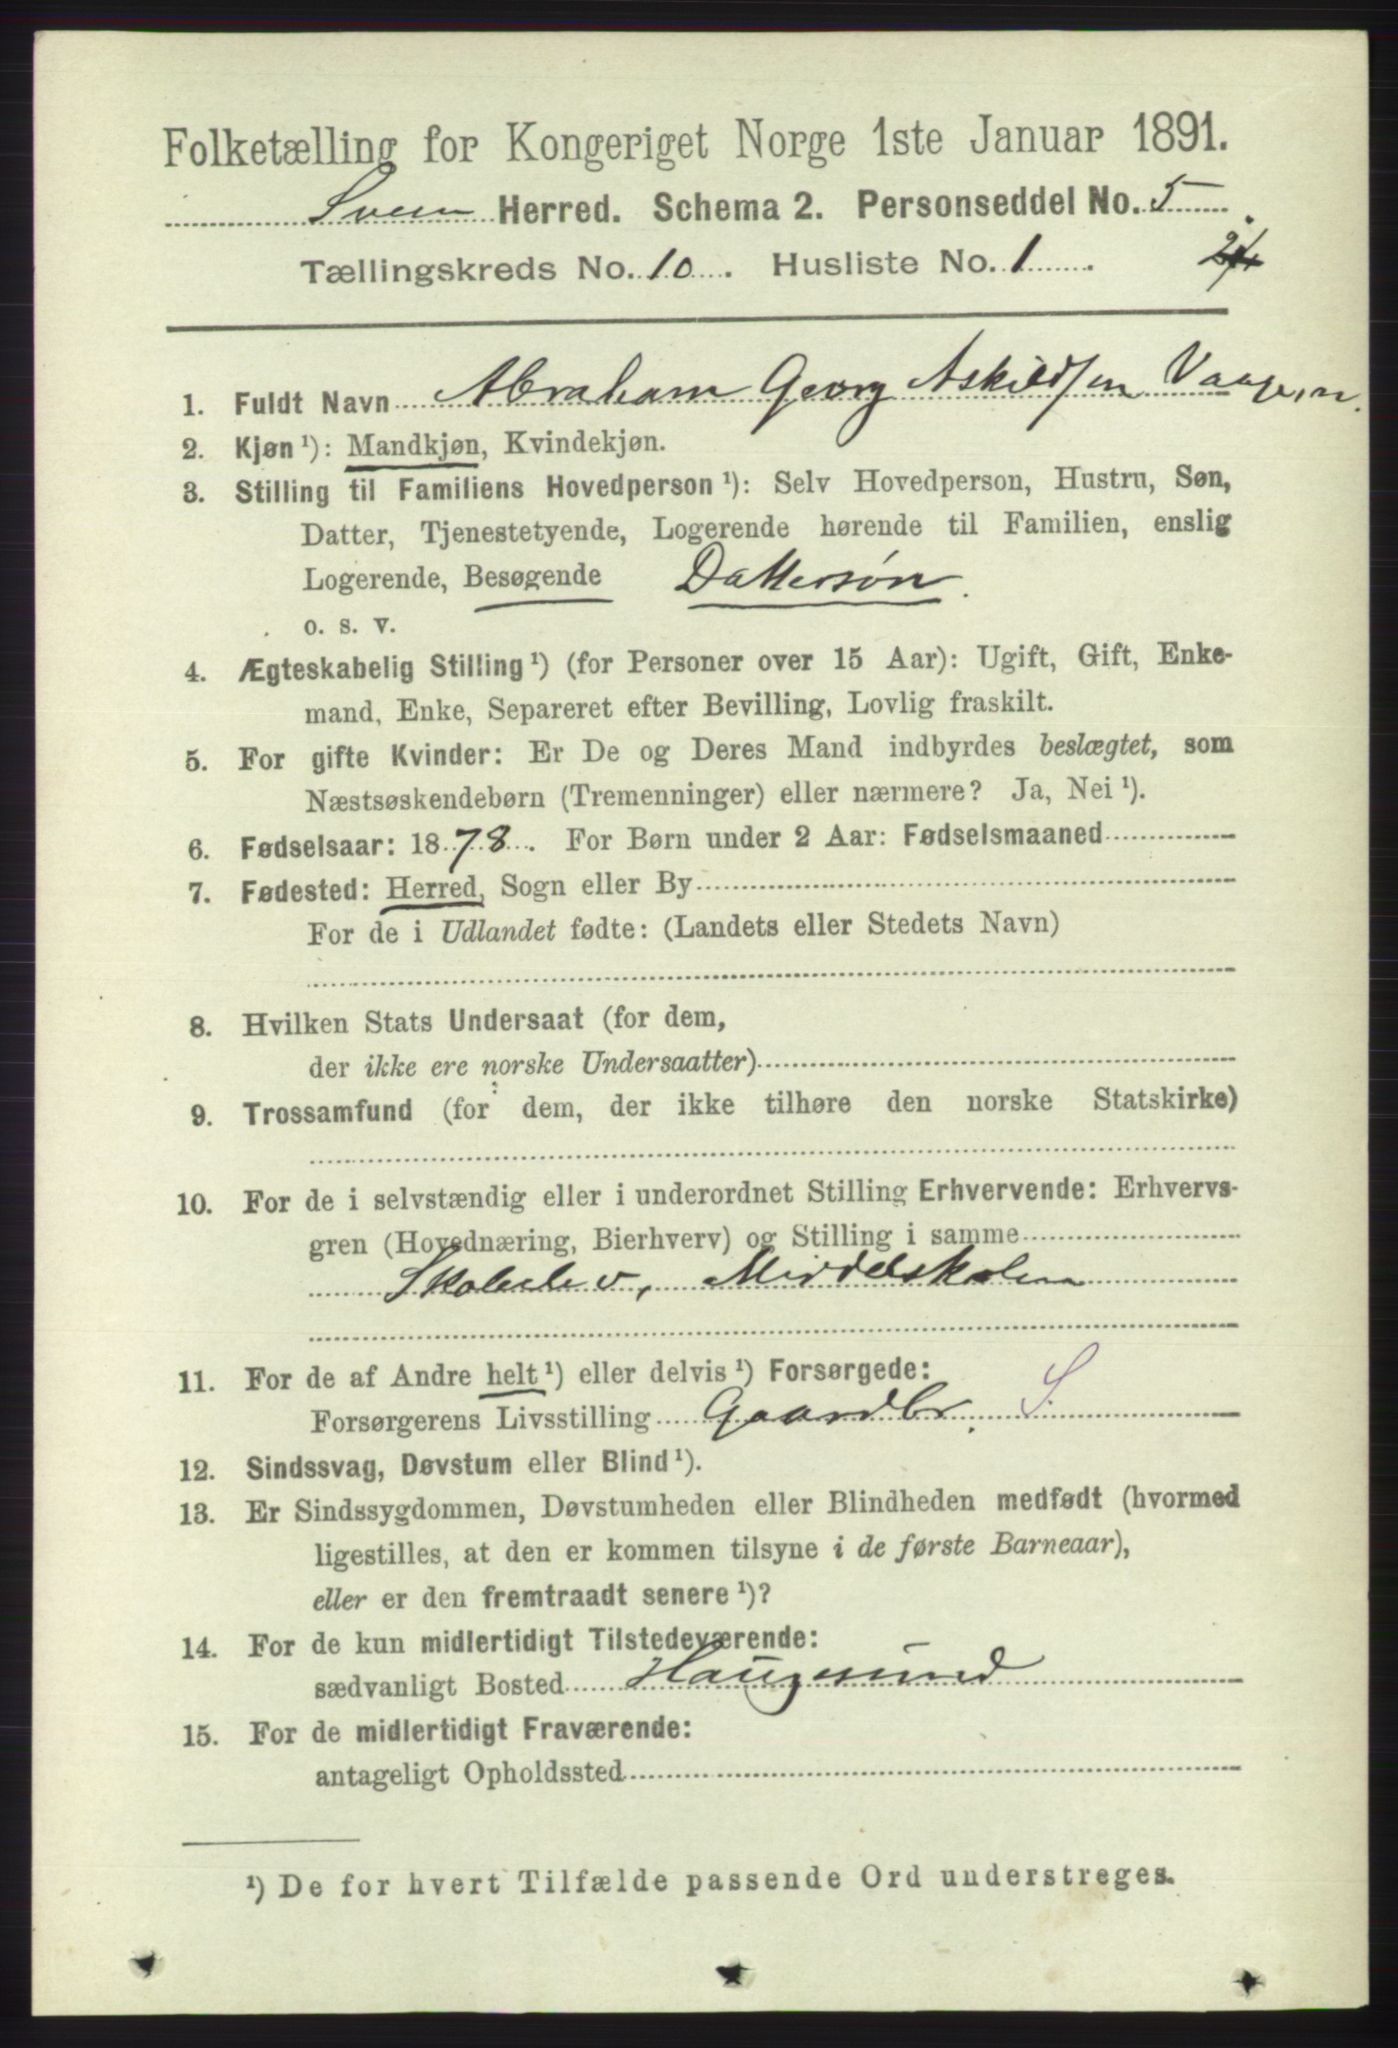 Folketælling for Kongeriget Norge 1ste Januar 1891.
Sveen Herred. Schema 2. Personseddel No. 5.
Tællingskreds No. 10. Husliste No. 1.
1. Fuldt Navn Abraham Georg Askildsen Vaagen.
2. Kjøn ¹): Mandkjøn, Kvindekjøn.
3. Stilling til Familiens Hovedperson ¹): Selv Hovedperson, Hustru, Søn,
Datter, Tjenestetyende, Logerende hørende til Familien, enslig
Logerende, Besøgende Dattersøn.
o. s. v.
4. Ægteskabelig Stilling ¹) (for Personer over 15 Aar): Ugift, Gift, Enke-
mand, Enke, Separeret efter Bevilling, Lovlig fraskilt.
5. For gifte Kvinder: Er De og Deres Mand indbyrdes beslægtet, som
Næstsøskendebørn (Tremenninger) eller nærmere? Ja, Nei ¹).
6. Fødselsaar: 1878. For Børn under 2 Aar: Fødselsmaaned
7. Fødested: Herred, Sogn eller By
For de i Udlandet fødte: (Landets eller Stedets Navn)
8. Hvilken Stats Undersaat (for dem,
der ikke ere norske Undersaatter)
9. Trossamfund (for dem, der ikke tilhøre den norske Statskirke)
10. For de i selvstændig eller i underordnet Stilling Erhvervende: Erhvervs-
gren (Hovednæring, Bierhverv) og Stilling i samme
Skoleelev, Middelskolen
11. For de af Andre helt ¹) eller delvis ¹) Forsørgede:
Forsørgerens Livsstilling Gaardbr. S.
12. Sindssvag, Døvstum eller Blind ¹).
13. Er Sindssygdommen, Døvstumheden eller Blindheden medfødt (hvormed
ligestilles, at den er kommen tilsyne i de første Barneaar),
eller er den fremtraadt senere ¹)?
14. For de kun midlertidigt Tilstedeværende:
sædvanligt Bosted Haugesund
15. For de midlertidigt Fraværende:
antageligt Opholdssted
¹) De for hvert Tilfælde passende Ord understreges.